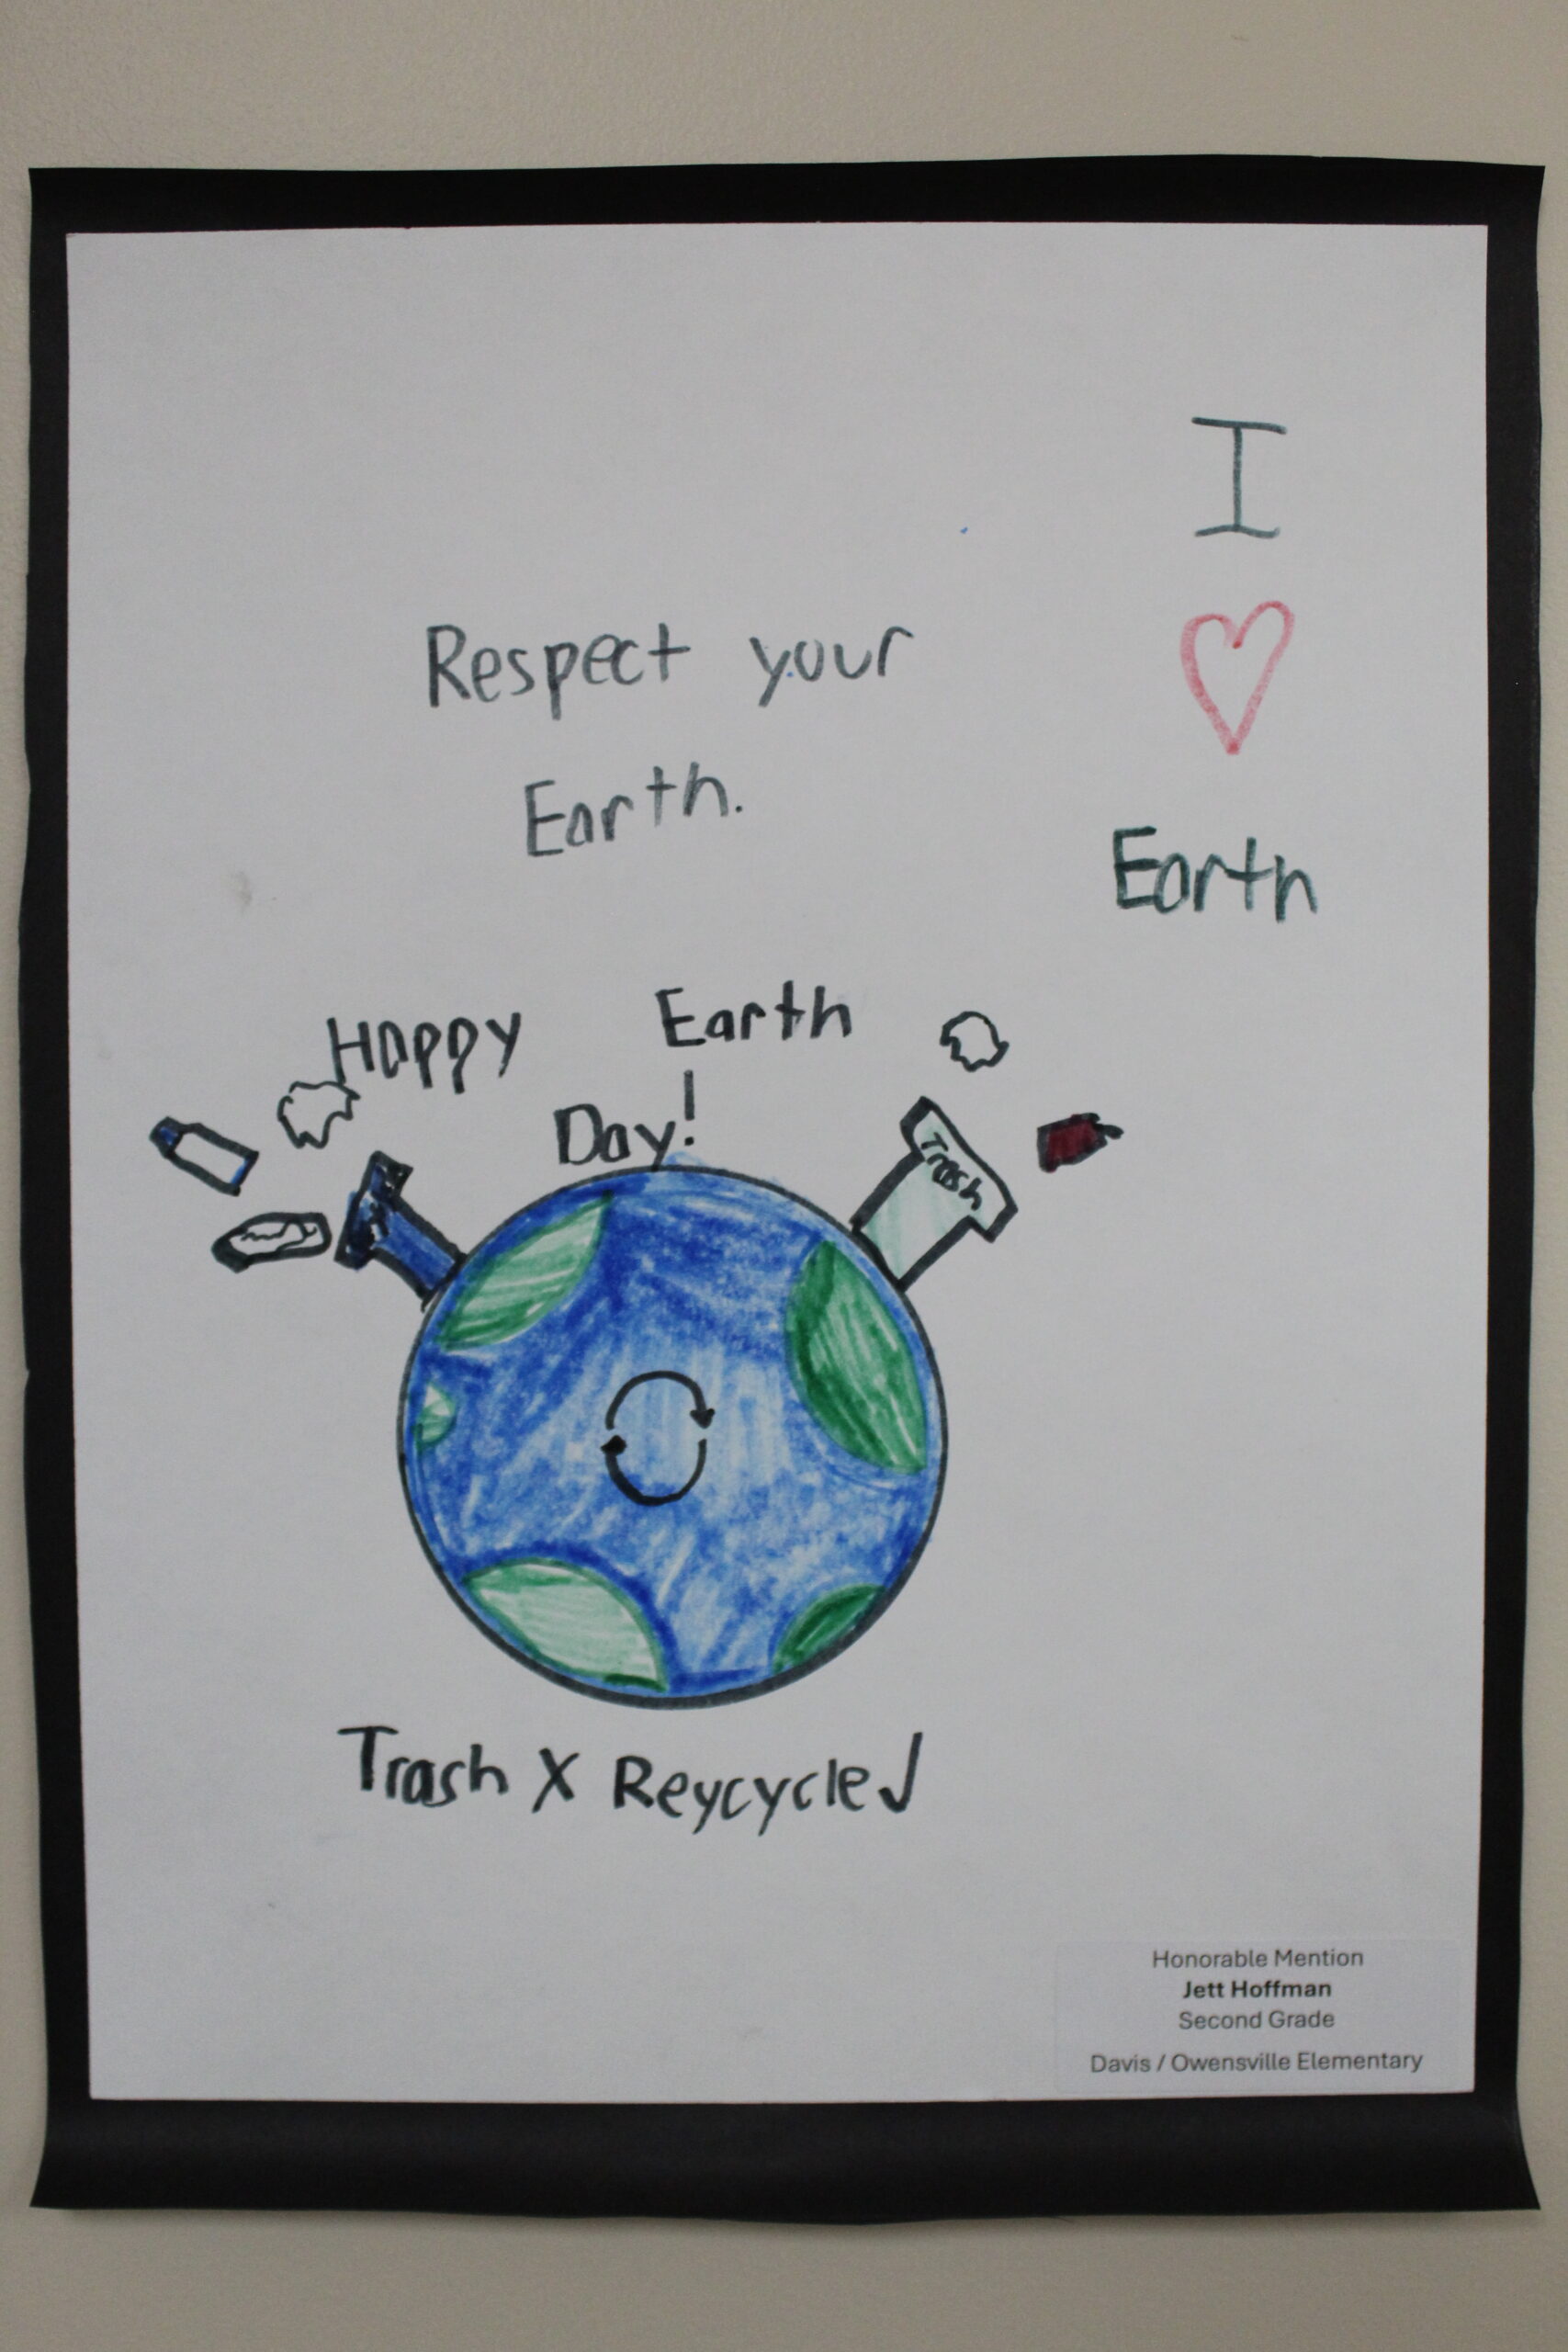 I
♡
Respect your
Earth.
Earth
Happy Earth
Day!
Trash
Trash X Reycycle✓
Honorable Mention
Jett Hoffman
Second Grade
Davis / Owensville Elementary